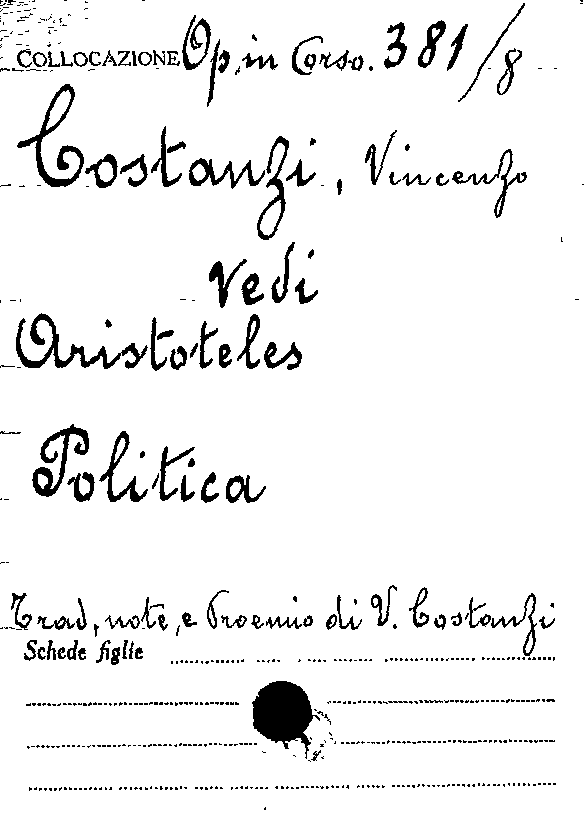 COLLOCAZIONE Op. in Corso. 381/8
Costanzi, Vincenzo
Vedi
Aristoteles
Politica
Trad, note, e Proemio di V. Costanzi
Schede figlie